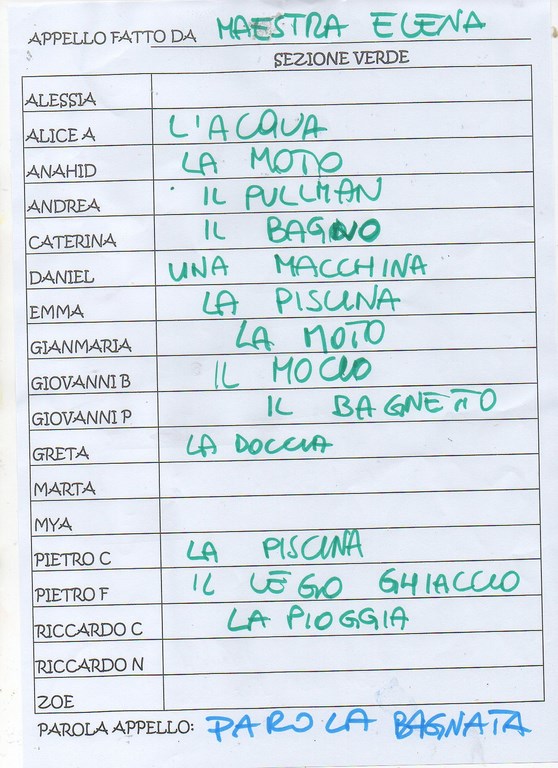 APPELLO FATTO DA MAESTRA ELENA
SEZIONE VERDE
ALESSIA
ALICE A L'ACQUA
ANAHID LA MOTO
ANDREA IL PULLMAN
CATERINA IL BAGNO
DANIEL UNA MACCHINA
EMMA LA PISCINA
GIANMARIA LA MOTO
GIOVANNI B IL MOCIO
GIOVANNI P IL BAGNETTO
GRETA LA DOCCIA
MARTA
MYA
PIETRO C LA PISCINA
PIETRO F IL LEGO GHIACCIO
RICCARDO C LA PIOGGIA
RICCARDO N
ZOE
PAROLA APPELLO: PAROLA BAGNATA